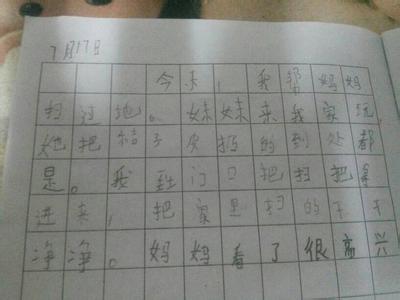 7月17日
今天，我帮妈妈
扫过地。妹妹来我家玩，
她把桔子皮扔的到处都
是。我到门口把扫把拿
进来，把家里扫的干干
净净。妈妈看了很高兴